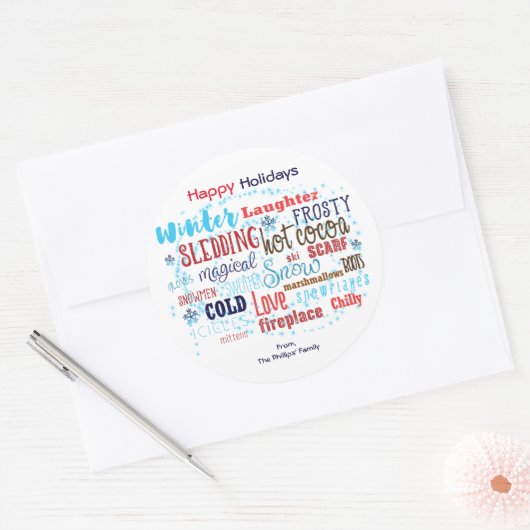 Happy Holidays
Winter Laughter FROSTY
SLEDDING hot cocoa
GLOVES magical ski SCARF
SNOWMEN SWEATER Snow marshmallows BOOTS
COLD Love snowflakes
ICICLES fireplace Chilly
mittens
From,
The Phillips' Family